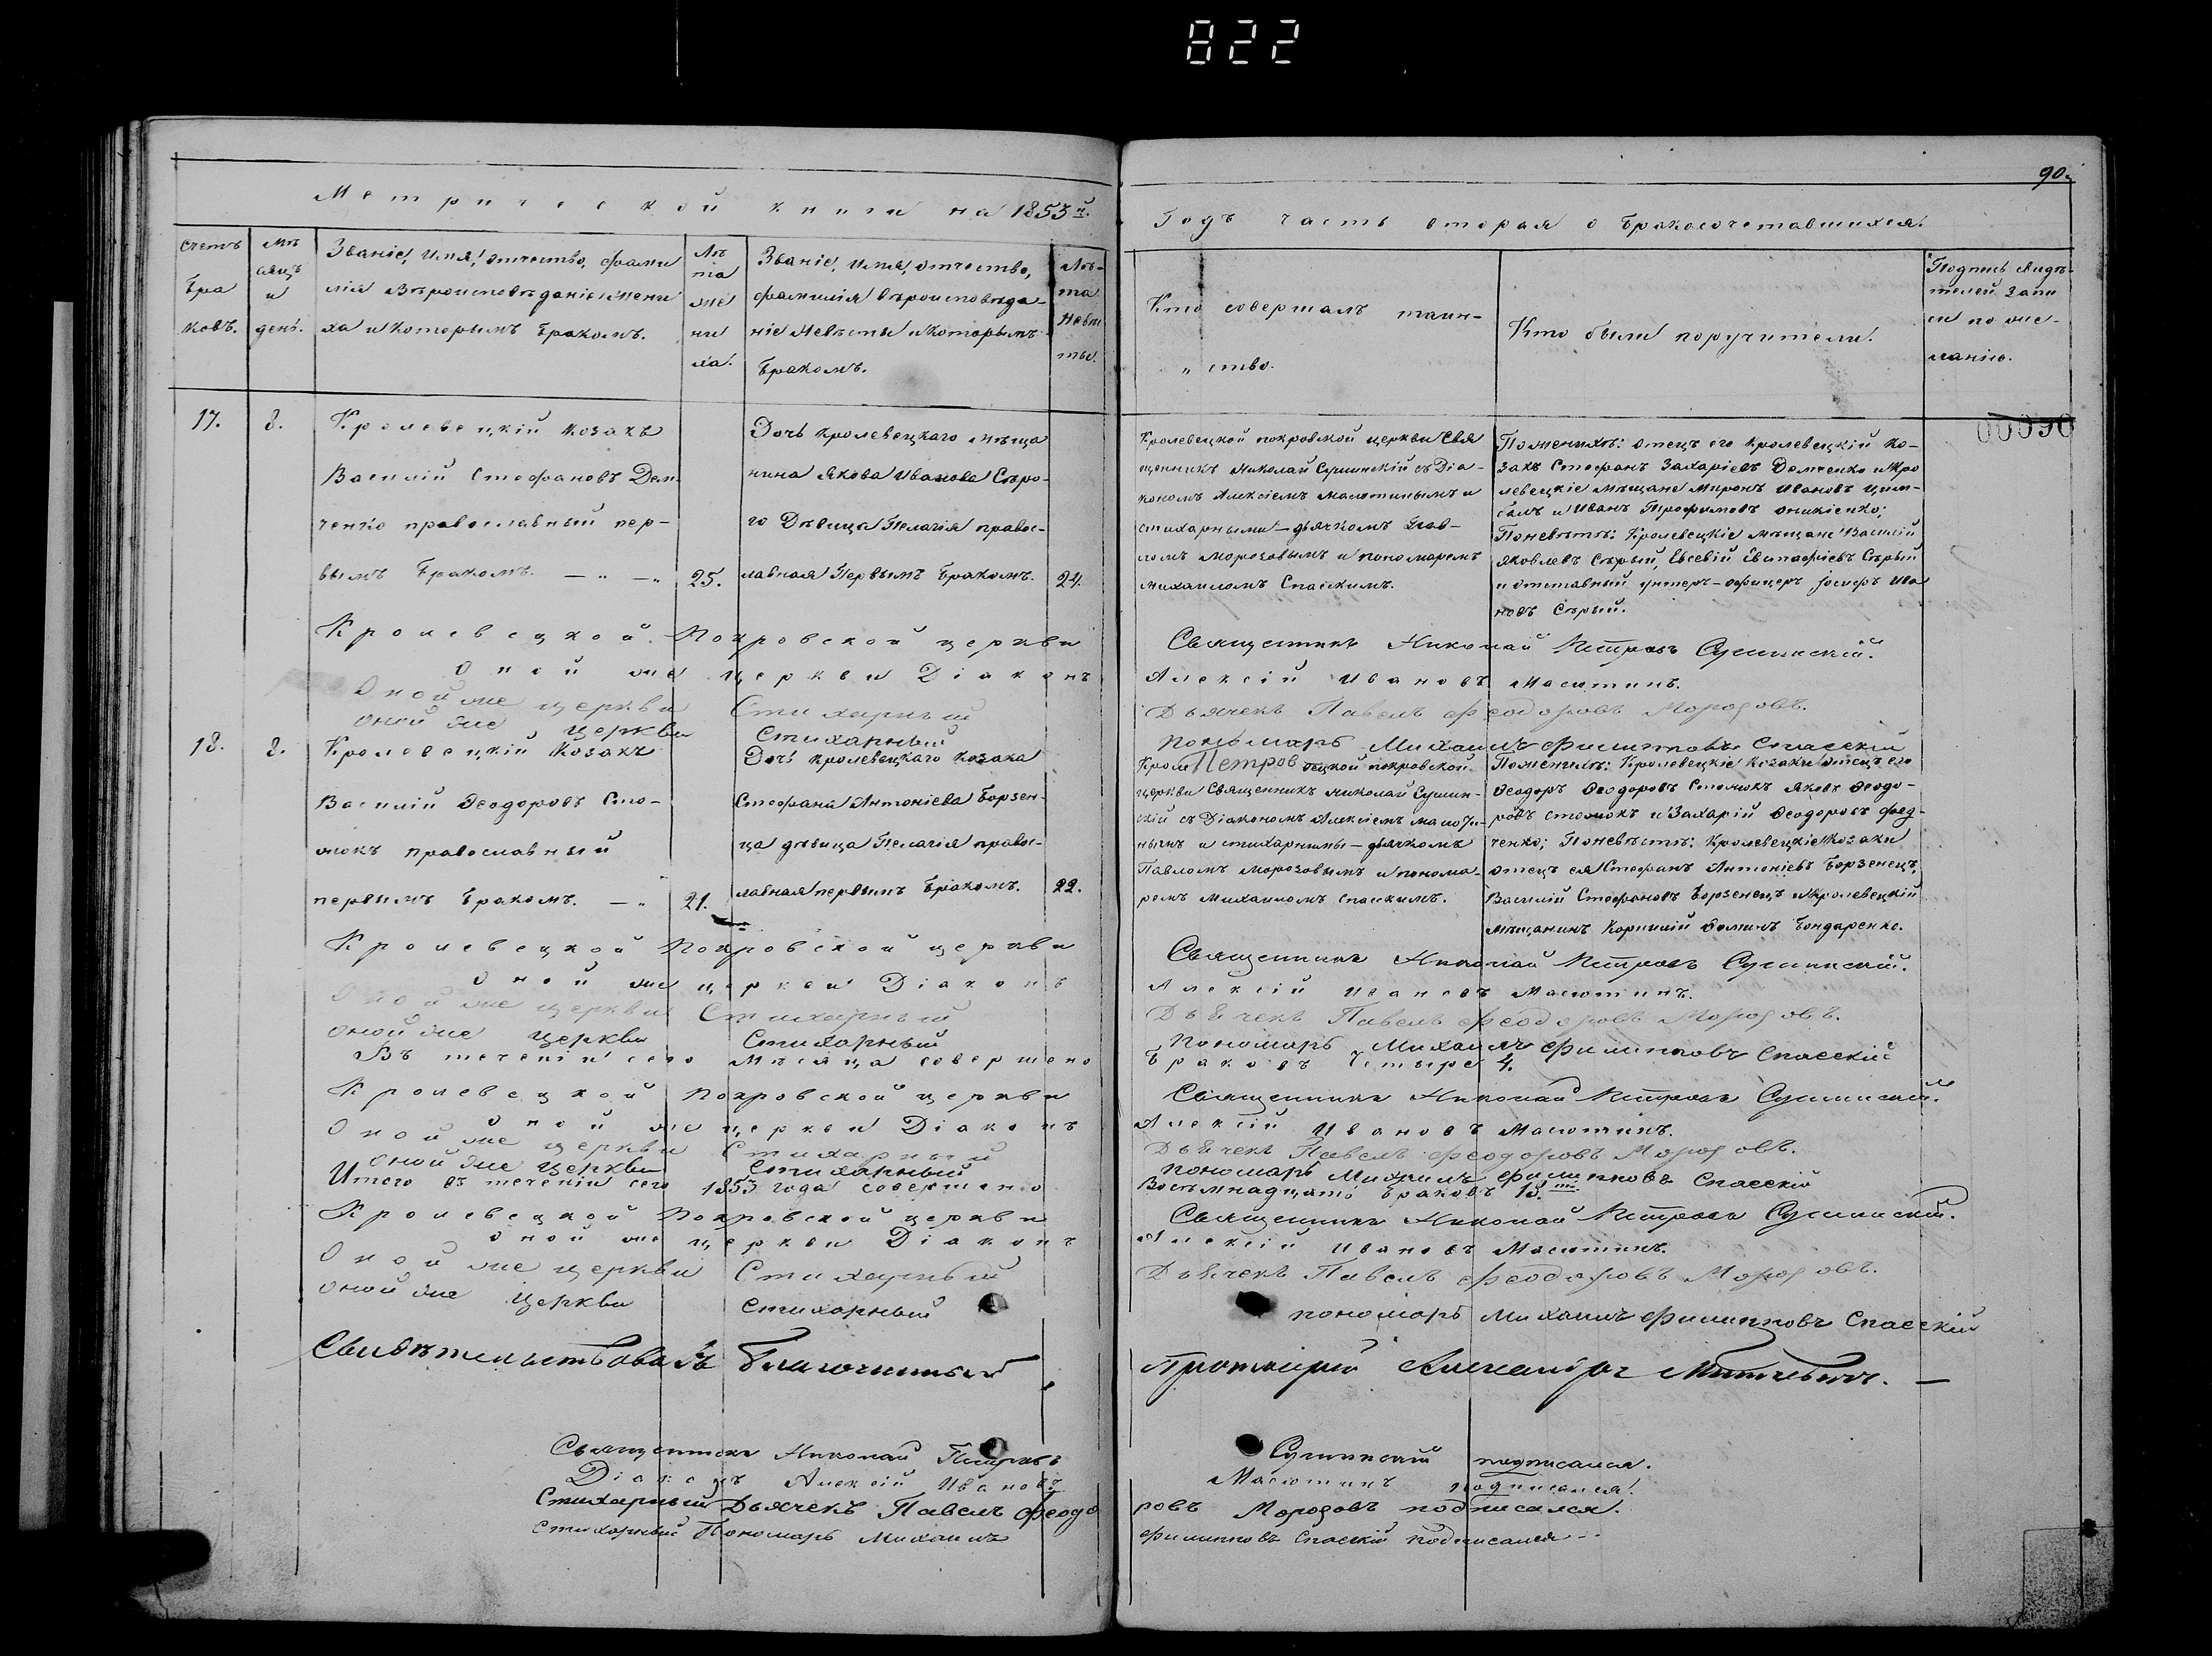 822
90.
Метрической книги на 1853й.
Годъ часть вторая о бракосочетавшихся.
Счетъ браковъ.
Мѣсяцъ и день.
Званіе, имя, отчество, фами
лія вѣроисповѣданіе жени
ха и которымъ бракомъ.
Лѣ
та
же
ни
ха.
Званіе, имя, отчество,
фамилія вѣроисповѣда-
ніе невѣсты и которымъ
бракомъ.
Лѣ-
та
невѣ
сты.
Кто совершалъ таин-
„ ство.
Кто были поручители.
Подпись свидѣ-
телей запи
си по же-
ланію.
00090
17.
8.
Кролевецкій козакъ
Василій Стефановъ Дем-
ченко православный пер-
вымъ бракомъ. — „ — „
25.
Дочь кролевецкаго мѣща
нина Якова Иванова Сѣро-
го дѣвица Пелагія правос-
лавная первымъ бракомъ.
24.
Кролевецкой покровской церкви свя
щенникъ Николай Сушинскій съ діа-
кономъ Алексіемъ Масютинымъ и
стихарными — дьячкомъ Пав-
ломъ Морозовымъ и пономаремъ
Михаиломъ Спаскимъ.
По женихѣ: отецъ его кролевецкій ко-
закъ Стефанъ Захаріевъ Демченко и кро
левецкіе мѣщане Миронъ Ивановъ Цим-
балъ и Иванъ Трофимовъ Оникіенко;
По невѣстѣ: Кролевецкіе мѣщане Василій
Яковлевъ Сѣрый, Евсевій Евстафіевъ Сѣрый
и отставный унтеръ-офицеръ Іосифъ Ива
новъ Сѣрый.
Кролевецкой Покровской церкви Священникъ Николай Петровъ Сушинскій.
Оной же церкви Діаконъ Алексій Ивановъ Масютинъ.
Оной же церкви Стихарный Дьячекъ Павелъ Феодоровъ Морозовъ.
оной же церкви Стихарный пономарь Михаилъ Филипповъ Спасскій
18.
8.
Кролевецкій козакъ
Василій Ѳеодоровъ Сто-
мокъ православный
первымъ бракомъ. — „
21.
Дочь кролевецкаго козака
Стефана Антоніева Борзен-
ца дѣвица Пелагія правос-
лавная первымъ бракомъ.
22.
Кролевецкой покровской
Петров
церкви священникъ Николай Сушин-
скій съ діакономъ Алексіемъ Масюти-
нымъ и стихарными — дьячкомъ
Павломъ Морозовымъ и понома-
ремъ Михаиломъ Спаскимъ.
По женихѣ: Кролевецкіе козаки отецъ его
Ѳеодоръ Ѳеодоровъ Стомокъ Яковъ Ѳеодо-
ровъ Стомокъ и Захарій Ѳеодоровъ Фед-
ченко; По невѣстѣ: Кролевецкіе козаки
отецъ ея Стефанъ Антоніевъ Борзенецъ,
Василій Стефановъ Борзенецъ и кролевецкій
мѣщанинъ Корнилій Доминъ Бондаренко.
Кролевецкой Покровской церкви Священникъ Николай Петровъ Сушинскій.
Оной же церкви Діаконъ Алексій Ивановъ Масютинъ.
Оной же церкви Стихарный Дьячекъ Павелъ Феодоровъ Морозовъ.
оной же церкви Стихарный пономарь Михаилъ Филипповъ Спасскій
Въ теченіи сего мѣсяца совершено браковъ четыре 4.
Кролевецкой Покровской церкви Священникъ Николай Петровъ Сушинскій.
Оной же церкви Діаконъ Алексій Ивановъ Масютинъ.
Оной же церкви Стихарный Дьячекъ Павелъ Феодоровъ Морозовъ.
оной же церкви Стихарный пономарь Михаилъ Филипповъ Спасскій
Итого въ теченіи сего 1853 года совершено Восѣмнадцать браковъ 18.ть
Кролевецкой Покровской церкви Священникъ Николай Петровъ Сушинскій.
Оной же церкви Діаконъ Алексій Ивановъ Масютинъ.
Оной же церкви Стихарный Дьячекъ Павелъ Феодоровъ Морозовъ.
оной же церкви стихарный пономарь Михаилъ Филипповъ Спасскій
Свидѣтельствовалъ Благочинный Протоіерей Александръ —
Священникъ Николай Петровъ Сушинскій подписался.
Діаконъ Алексій Ивановъ Масютинъ подписался.
Стихарный Дьячекъ Павелъ Феодоровъ Морозовъ подписался.
Стихарный Пономарь Михаилъ Филипповъ Спаскій подписался --